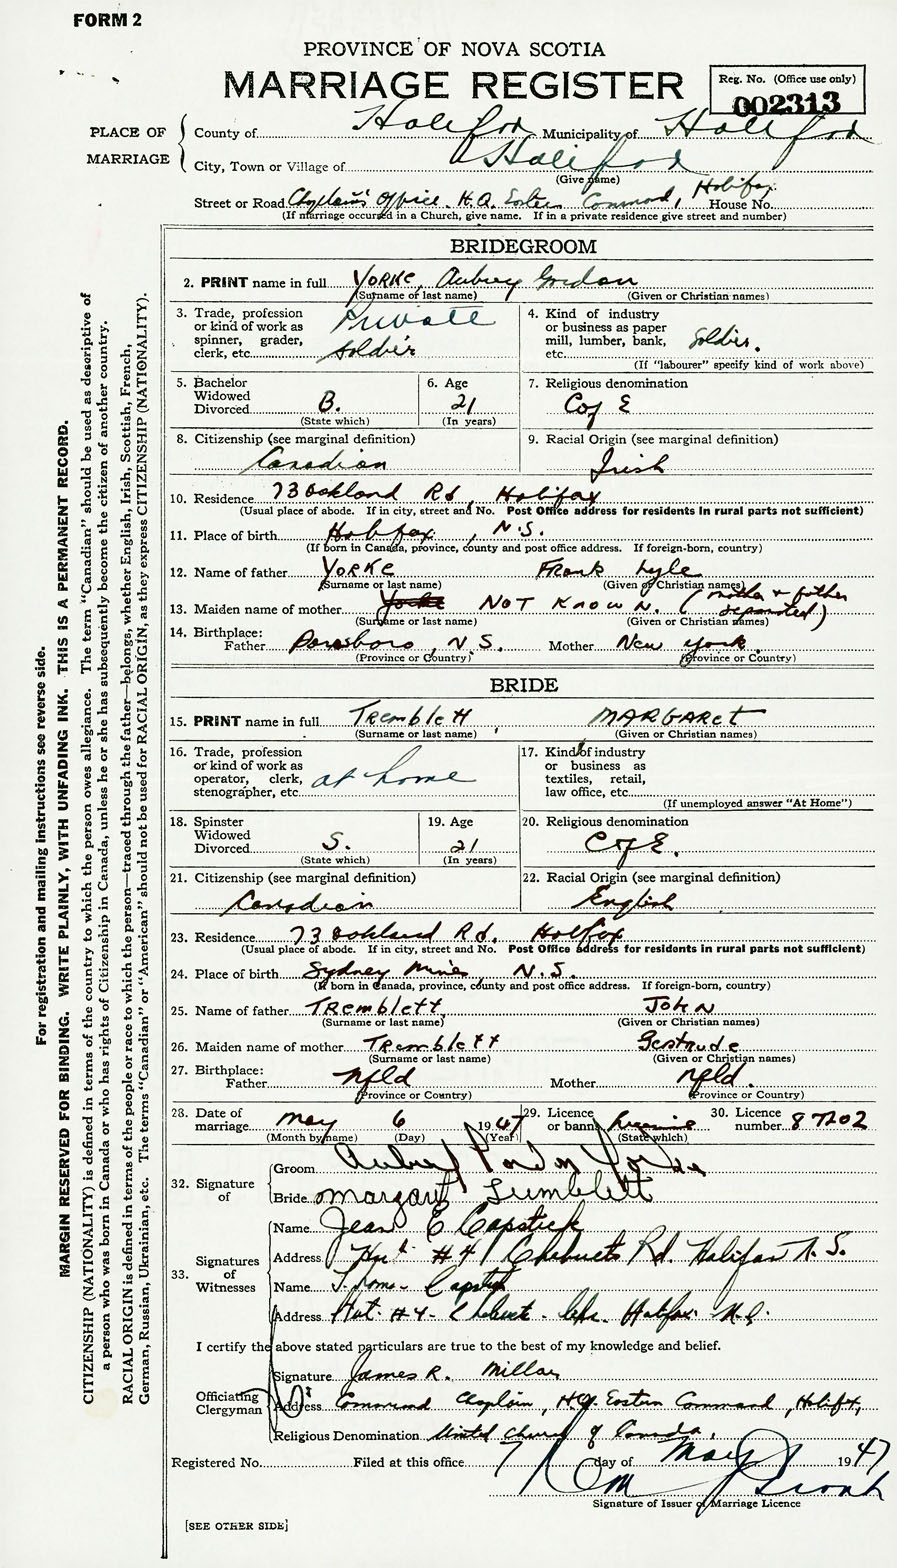 FORM 2
PROVINCE OF NOVA SCOTIA
MARRIAGE REGISTER
Reg. No. (Office use only)
002313
PLACE OF MARRIAGE
County of Halifax Municipality of Halifax
City, Town or Village of Halifax
(Give name)
Street or Road Chaplain's Office. H.Q. Eastern Command, Halifax House No.
(If marriage occurred in a Church, give name. If in a private residence give street and number)
BRIDEGROOM
2. PRINT name in full YORKE, Aubrey Gordon
(Surname or last name) (Given or Christian names)
3. Trade, profession or kind of work as spinner, grader, clerk, etc. Private soldier
4. Kind of industry or business as paper mill, lumber, bank, etc. Soldier.
(If "labourer" specify kind of work above)
5. Bachelor Widowed Divorced B.
(State which)
6. Age 21
(In years)
7. Religious denomination C of E
8. Citizenship (see marginal definition) Canadian
9. Racial Origin (see marginal definition) Irish
10. Residence 73 Oakland Rd, Halifax
(Usual place of abode. If in city, street and No. Post Office address for residents in rural parts not sufficient)
11. Place of birth Halifax, N.S.
(If born in Canada, province, county and post office address. If foreign-born, country)
12. Name of father YORKE Frank Lyle
(Surname or last name) (Given or Christian names)
13. Maiden name of mother Yorke NOT KNOWN. (mother & father separated)
(Surname or last name) (Given or Christian names)
14. Birthplace: Father Parrsboro, N.S. Mother New York.
(Province or Country) (Province or Country)
BRIDE
15. PRINT name in full Tremblett, MARGARET
(Surname or last name) (Given or Christian names)
16. Trade, profession or kind of work as operator, clerk, stenographer, etc. at home
17. Kind of industry or business as textiles, retail, law office, etc.
(If unemployed answer "At Home")
18. Spinster Widowed Divorced S.
(State which)
19. Age 21
(In years)
20. Religious denomination C of E.
21. Citizenship (see marginal definition) Canadian
22. Racial Origin (see marginal definition) English
23. Residence 73 Oakland Rd. Halifax
(Usual place of abode. If in city, street and No. Post Office address for residents in rural parts not sufficient)
24. Place of birth Sydney Mines, N.S.
(If born in Canada, province, county and post office address. If foreign-born, country)
25. Name of father TREMBLETT, JOHN
(Surname or last name) (Given or Christian names)
26. Maiden name of mother Tremblett Gertrude
(Surname or last name) (Given or Christian names)
27. Birthplace: Father Nfld Mother Nfld.
(Province or Country) (Province or Country)
28. Date of marriage May 6 1947
(Month by name) (Day) (Year)
29. Licence or banns License
(State which)
30. Licence number 87202
32. Signature of
Groom Aubrey Gordon Yorke
Bride Margaret Tremblett
33. Signatures of Witnesses
Name Jean E Capstick
Address Hut #4 Chebucto Rd. Halifax N.S.
Name Capstick
Address Hut #4 - Halifax N.S.
I certify the above stated particulars are true to the best of my knowledge and belief.
Officiating Clergyman
Signature James R. Millar
Address Command Chaplain, HQ. Eastern Command, Halifax,
Religious Denomination United Church of Canada.
Registered No. Filed at this office 7 day of May 1947
Signature of Issuer of Marriage Licence
[SEE OTHER SIDE]
For registration and mailing instructions see reverse side.
MARGIN RESERVED FOR BINDING. WRITE PLAINLY, WITH UNFADING INK. THIS IS A PERMANENT RECORD.
CITIZENSHIP (NATIONALITY) is defined in terms of the country to which the person owes allegiance. The term "Canadian" should be used as descriptive of
a person who was born in Canada or who has rights of Citizenship in Canada, unless he or she has subsequently become the citizen of another country.
RACIAL ORIGIN is defined in terms of the people or race to which the person—traced through the father—belongs, whether English, Irish, Scottish, French,
German, Russian, Ukrainian, etc. The terms "Canadian" or "American" should not be used for RACIAL ORIGIN, as they express CITIZENSHIP (NATIONALITY).